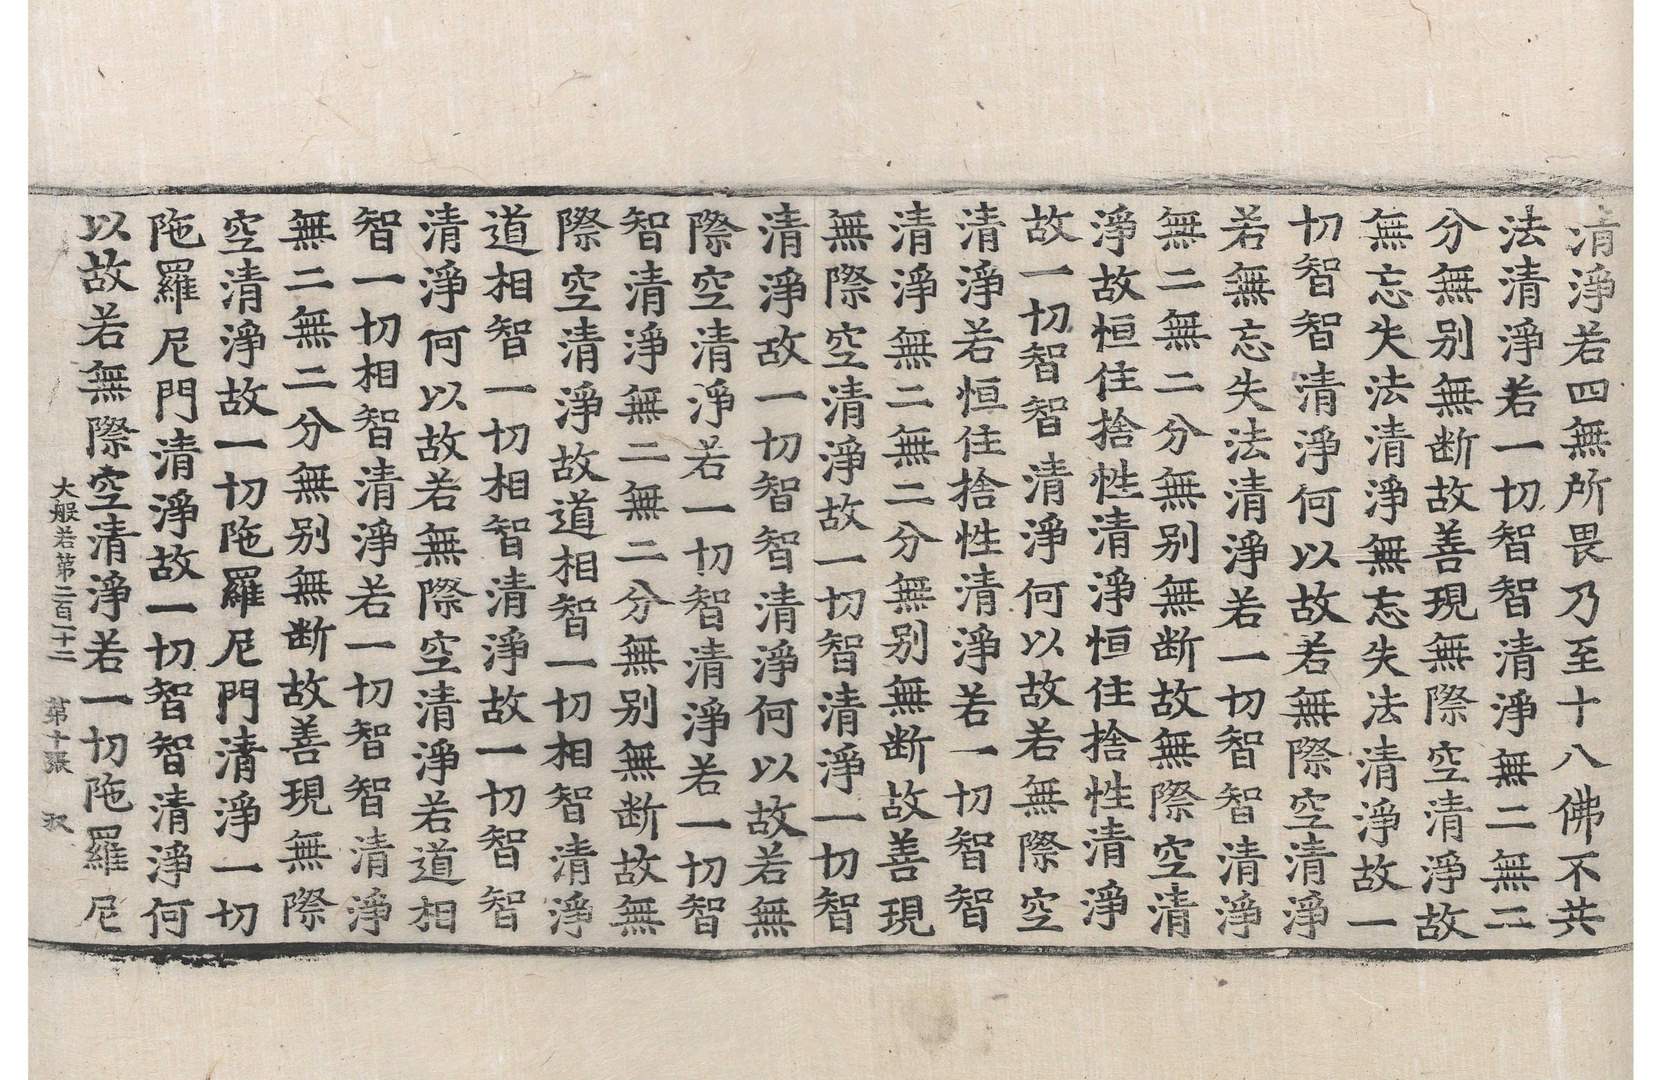 清淨若四無所畏乃至十八佛不共
法清淨若一切智智清淨無二無二
分無别無断故善現無際空清淨故
無忘失法清淨無忘失法清淨故一
切智智清淨何以故若無際空清淨
若無忘失法清淨若一切智智清淨
無二無二分無别無断故無際空清
淨故恒住捨性清淨恒住捨性清淨
故一切智智清淨何以故若無際空
清淨若恒住捨性清淨若一切智智
清淨無二無二分無别無断故善現
無際空清淨故一切智清淨一切智
清淨故一切智智清淨何以故若無
際空清淨若一切智清淨若一切智
智清淨無二無二分無别無断故無
際空清淨故道相智一切相智清淨
道相智一切相智清淨故一切智智
清淨何以故若無際空清淨若道相
智一切相智清淨若一切智智清淨
無二無二分無别無断故善現無際
空清淨故一切陁羅尼門清淨一切
陁羅尼門清淨故一切智智清淨何
以故若無際空清淨若一切陁羅尼
大般若第二百一十二 第十張 収